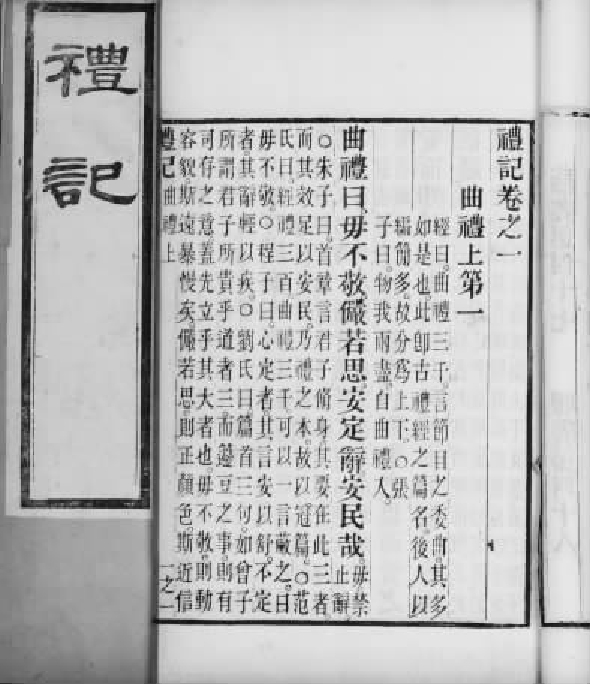 禮記
禮記卷之一
曲禮上第一
經曰。曲禮三千。言節目之委曲其多
如是也。此卽古禮經之篇名後人以
編簡多。故分爲上下。○張
子曰。物我兩盡。自曲禮入。
曲禮曰。毋不敬。儼若思。安定辭。安民哉。毋禁
止辭
○朱子曰。首章言君子脩身。其要在此三者。
而其效足以安民。乃禮之本。故以冠篇。○范
氏曰。經禮三百。曲禮三千。可以一言蔽之。曰
毋不敬。○程子曰。心定者其言安以舒。不定
者。其辭輕以疾。○劉氏曰。篇首三句。如曾子
所謂君子所貴乎道者三。而籩豆之事則有
司存之意。蓋先立乎其大者也。毋不敬。則動
容貌斯遠暴慢矣。儼若思。則正顏色。斯近信
禮記 曲禮上 一之一